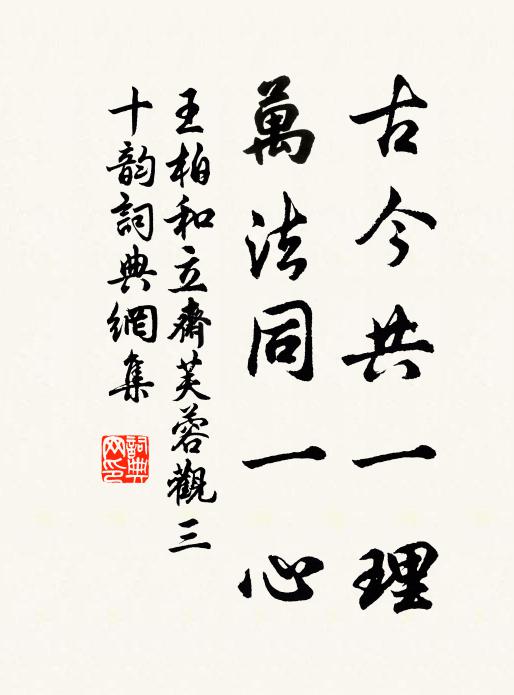 古今共一理
萬法同一心
王柏和立齋芙蓉觀三
十韵詞典網集
詞典
网印